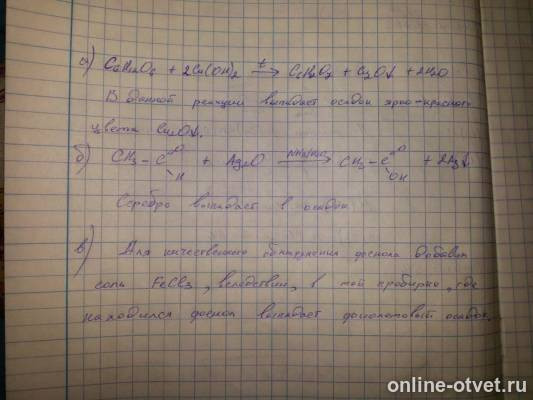 а) C6H12O6 + 2Cu(OH)2 t→ C6H12O7 + Cu2O↓ + 2H2O
В данной реакции выпадает осадок ярко-красного
цвета Cu2O↓.
б) CH3 - C =O H + Ag2O NH3/H2O→ CH3 - C =O OH + 2Ag↓
Серебро выпадает в осадок
в) Для качественного обнаружения фенола добавим
соль FeCl3, вследствии, в той пробирке, где
находился фенол выпадает фиолетовый осадок.
online-otvet.ru